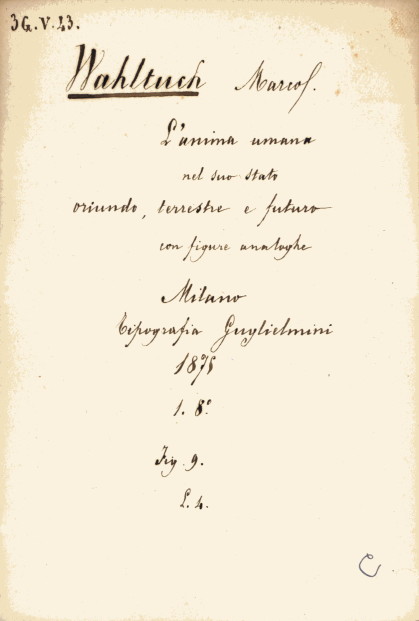 3G.V.23.
Wahltuch Marco.
L'anima umana
nel suo stato
oriundo, terrestre e futuro
con figure analoghe
Milano
Tipografia Guglielmini
1875
1. 8º
Fig. 9.
L. 4.
C